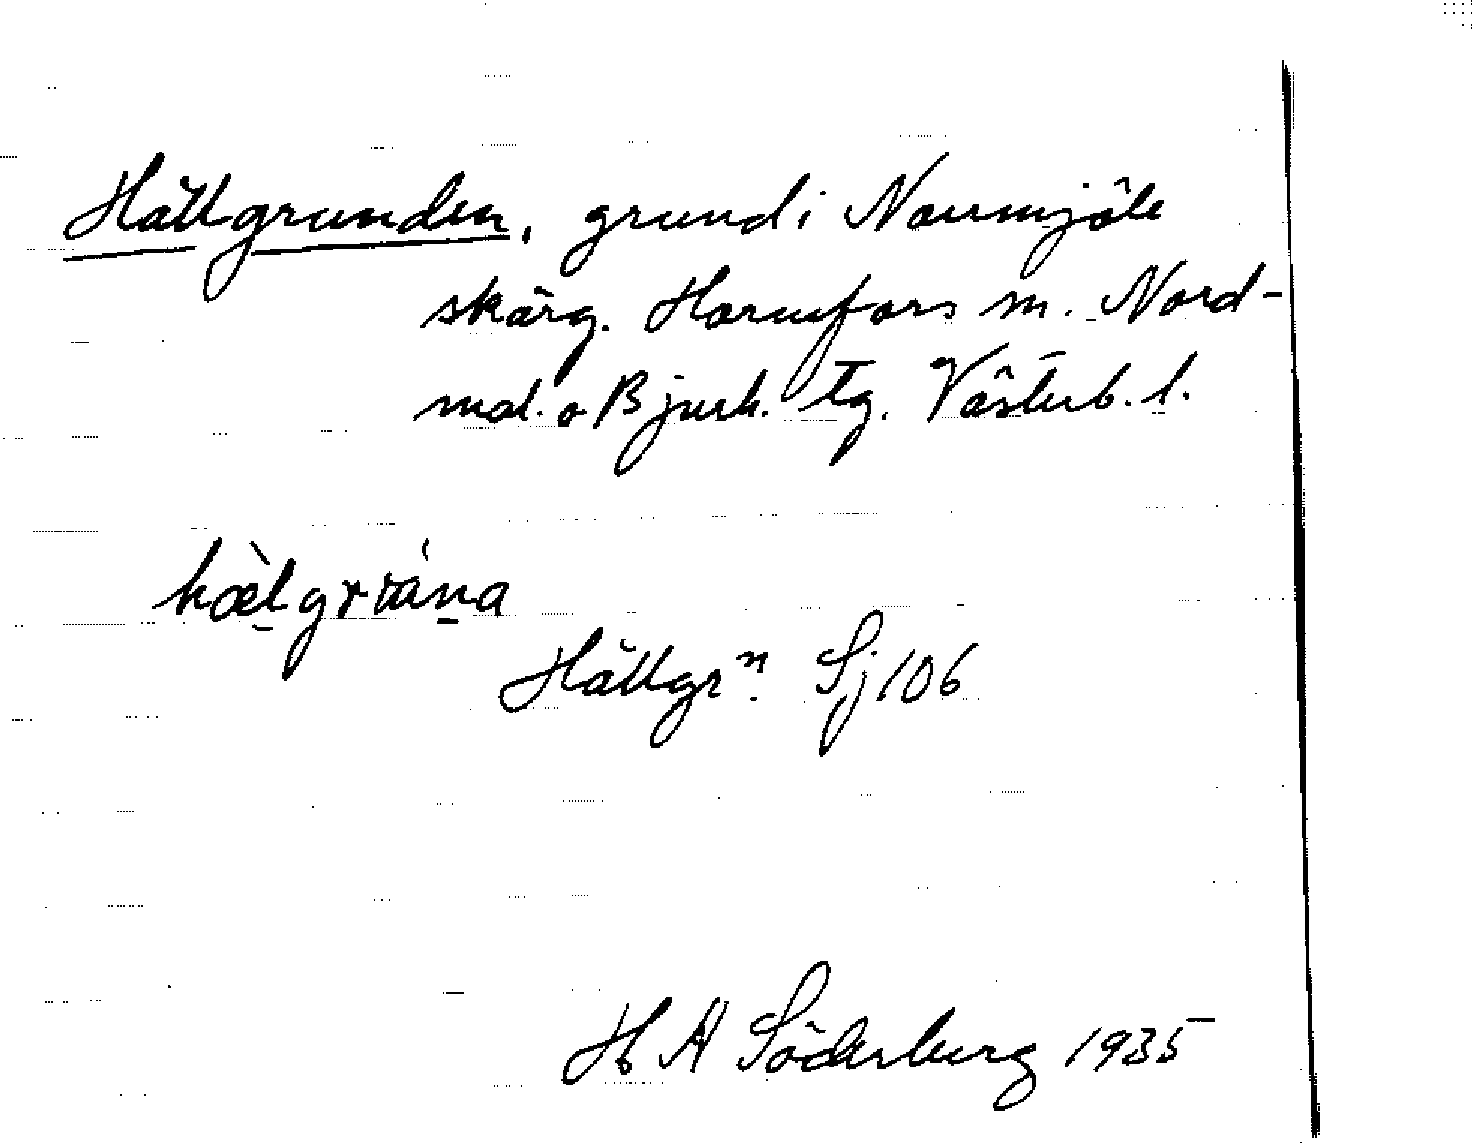 Hällgrunden, grund i Norrmjöle
skärg. Hörnefors sn. Nord-
mal. o Bjurh. tg. Västerb. l.
Hällgrⁿ. Sj 106
H A Söderberg 1935